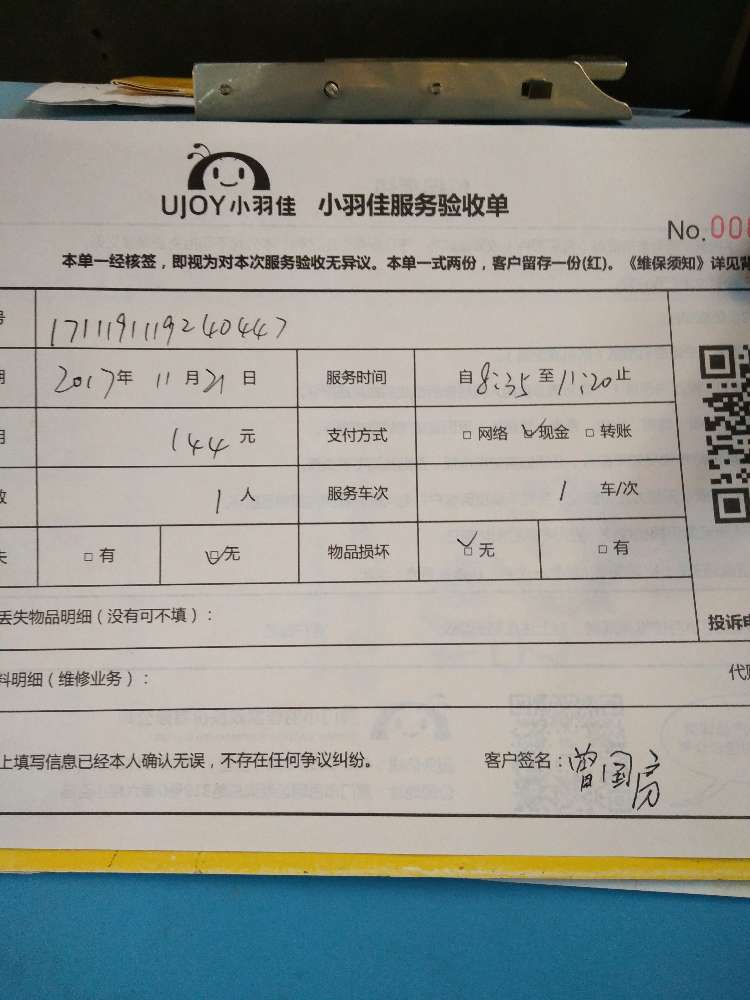 UJOY小羽佳 小羽佳服务验收单
No.00
本单一经核签，即视为对本次服务验收无异议。本单一式两份，客户留存一份(红)。《维保须知》详见背
号 1711191119240447
期 2017年 11月21日 服务时间 自8:35至11:20止
用 144元 支付方式 □网络 ☑现金 □转账
数 1人 服务车次 1 车/次
失 □有 ☑无 物品损坏 ☑无 □有
丢失物品明细（没有可不填）：
投诉电
料明细（维修业务）：
代
上填写信息已经本人确认无误，不存在任何争议纠纷。 客户签名：曾国房